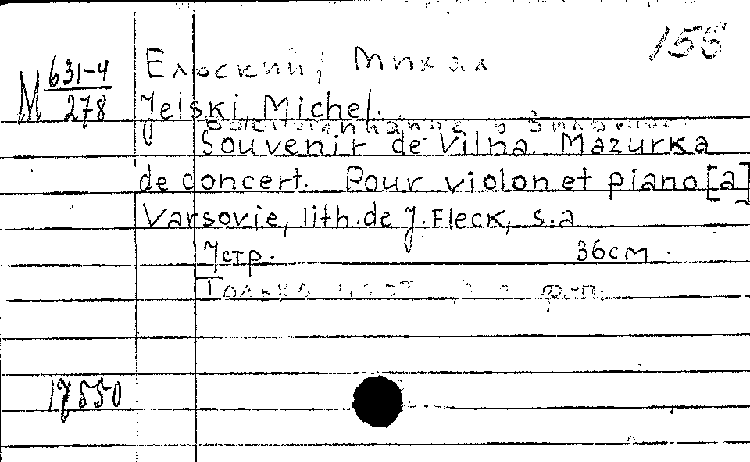 155
М 631-4/278
Ельский, Михал
Jelski, Michel.
Souvenir de Vilna. Mazurka
de concert. Pour violon et piano [a]
Varsovie, lith. de J. Fleck, s.a
7стр. 36см.
Только
17550